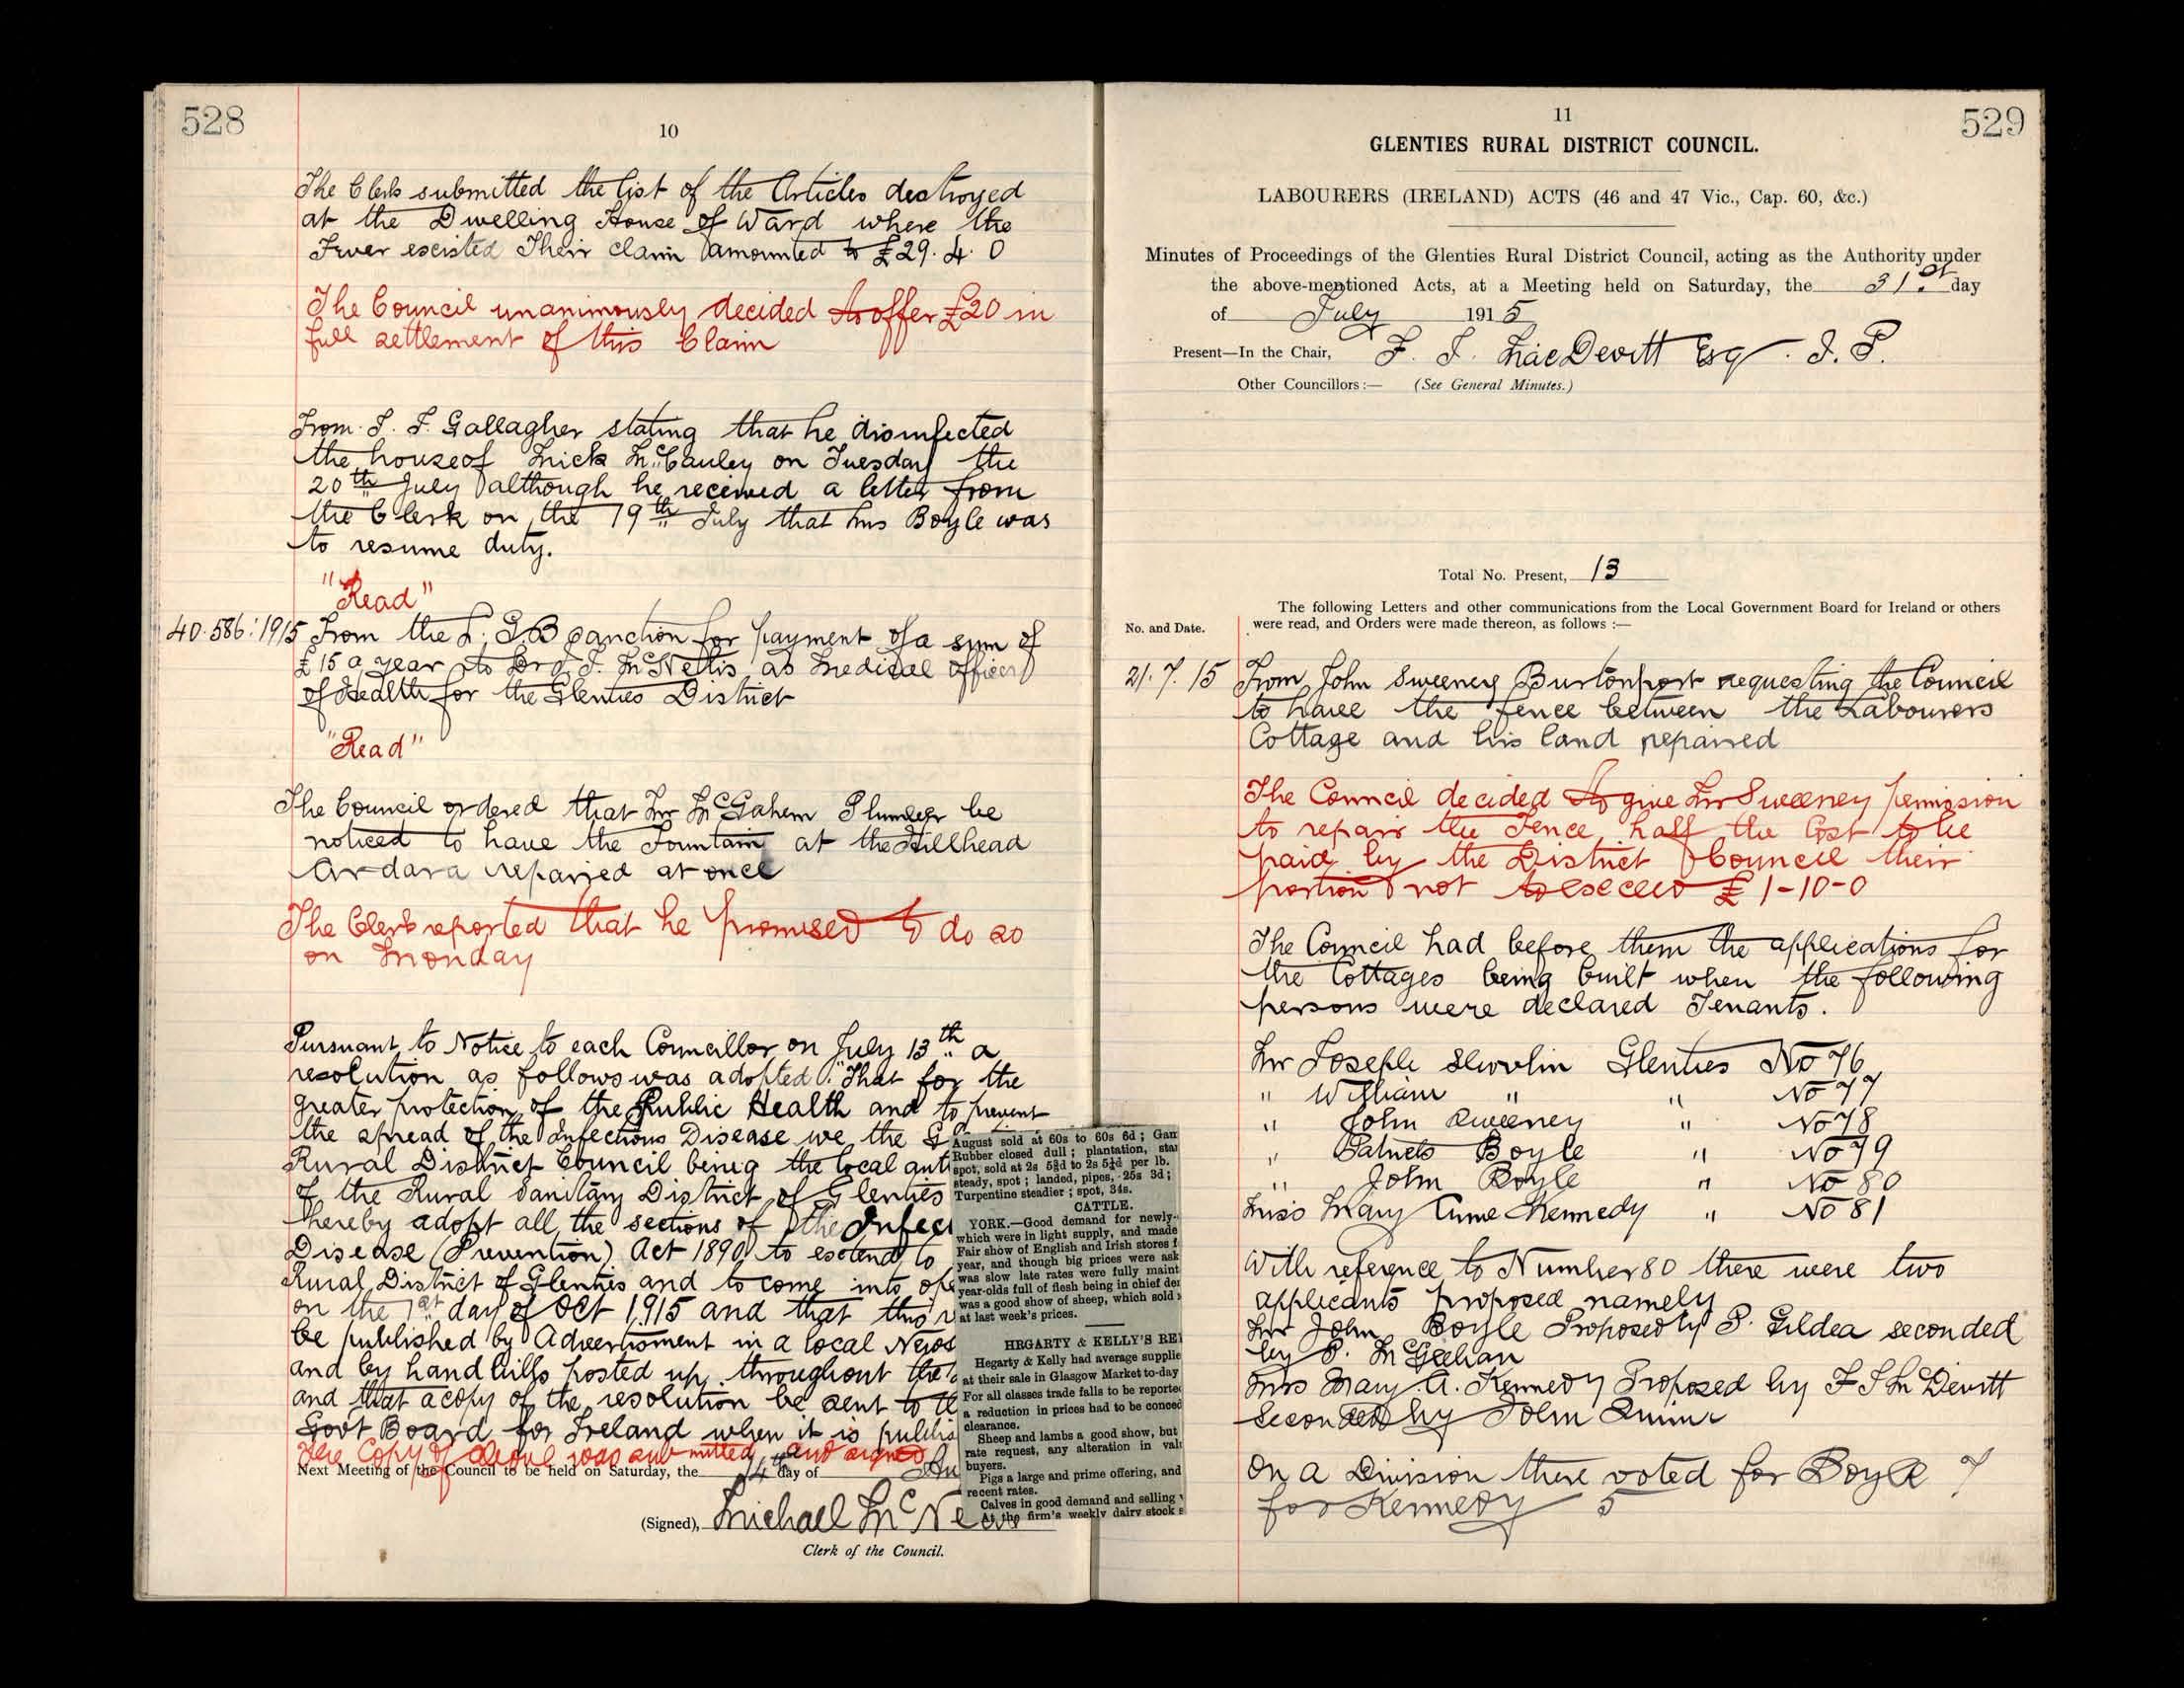 528
10
The Clerk submitted the list of the Articles destroyed
at the Dwelling House of Ward where the
Fever existed Their claim amounted to £29.4.0
The Council unanimously decided to offer £20 in
full settlement of this Claim
From J. F. Gallagher stating that he disinfected
the house of Mick McCauley on Tuesday the
20th July although he received a letter from
the Clerk on the 19th July that Mrs Boyle was
to resume duty.
"Read"
40.586:1915 From the L.G.B sanction for payment of a sum of
£15 a year to Dr J. F. McNelis as Medical officer
of Health for the Glenties District
"Read"
The Council ordered that Mr McGahern Plumber be
noticed to have the Fountain at the Hillhead
Ardara repaired at once
The Clerk reported that he promised to do so
on Monday
Pursuant to Notice to each Councillor on July 13th a
resolution as follows was adopted. "That for the
greater protection of the Public Health and to prevent
the spread of the Infectious Disease we the G
Rural District Council being the local aut
of the Rural Sanitary District of Glenties
hereby adopt all the sections of the Infec
Disease (Prevention) Act 1890 to extend to
Rural District of Glenties and to come into ope
on the 1st day of Oct 1915 and that this r
be published by Advertisment in a local News
and by hand bills posted up throughout the
and that a copy of the resolution be sent to the
Govt Board for Ireland when it is publis
The Copy of above was submitted and signed
Next Meeting of the Council to be held on Saturday, the 14th day of Au
(Signed), Michael McNe
Clerk of the Council.
August sold at 60s to 60s 6d; Gam
Rubber closed dull; plantation, stan
spot, sold at 2s 5¾d to 2s 5¼d per lb.
steady, spot; landed, pipes, 25s 3d;
Turpentine steadier; spot, 34s.
CATTLE.
YORK.—Good demand for newly-
which were in light supply, and made
Fair show of English and Irish stores f
year, and though big prices were ask
was slow late rates were fully maint
year-olds full of flesh being in chief der
was a good show of sheep, which sold
at last week's prices.
HEGARTY & KELLY'S RE
Hegarty & Kelly had average supplie
at their sale in Glasgow Market to-day
For all classes trade falls to be reported
a reduction in prices had to be conced
clearance.
Sheep and lambs a good show, but
rate request, any alteration in valu
buyers.
Pigs a large and prime offering, and
recent rates.
Calves in good demand and selling
At the firm's weekly dairy stock s
529
11
GLENTIES RURAL DISTRICT COUNCIL.
LABOURERS (IRELAND) ACTS (46 and 47 Vic., Cap. 60, &c.)
Minutes of Proceedings of the Glenties Rural District Council, acting as the Authority under
the above-mentioned Acts, at a Meeting held on Saturday, the 31st day
of July 1915
Present—In the Chair, F. J. MacDevitt Esq. J.P.
Other Councillors:— (See General Minutes.)
Total No. Present, 13
The following Letters and other communications from the Local Government Board for Ireland or others
No. and Date. were read, and Orders were made thereon, as follows:—
21.7.15 From John Sweeney Burtonport requesting the Council
to have the fence between the Labourers
Cottage and his land repaired
The Council decided to give Mr Sweeney permission
to repair the Fence, half the Cost to be
paid by the District Council their
portion not to exceed £1-10-0
The Council had before them the applications for
the Cottages being built when the following
persons were declared Tenants.
Mr Joseph Glenties No 76
" William " " No 77
" John Sweeney " No 78
" Patrick Boyle " No 79
" John Boyle " No 80
Miss Mary Anne Kennedy " No 81
With reference to Number 80 there were two
applicants proposed namely
Mr John Boyle Proposed by P. Gildea seconded
by P. McGeehan
Miss Mary A. Kennedy Proposed by F J McDevitt
Seconded by John
On a Division there voted for Boyle 7
for Kennedy 5